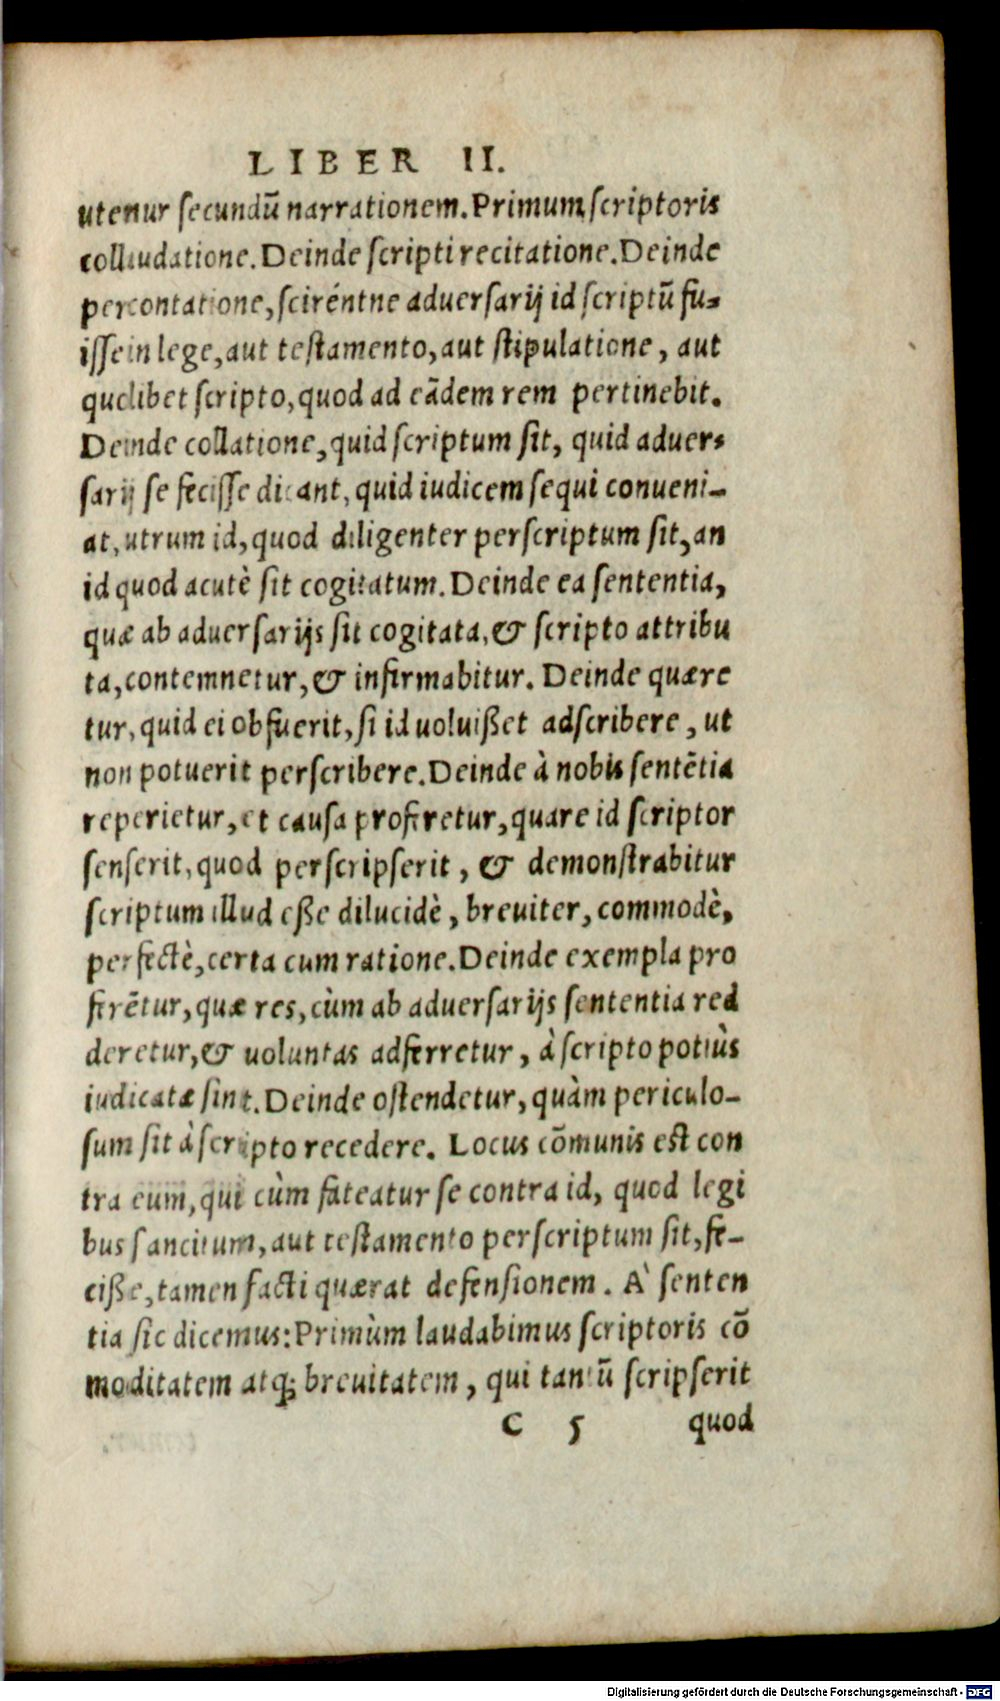 LIBER II.
utenur secundū narrationem. Primum scriptoris
collaudatione. Deinde scripti recitatione. Deinde
percontatione, sciréntne aduersarij id scriptū fu-
isse in lege, aut testamento, aut stipulatione, aut
quolibet scripto, quod ad eādem rem pertinebit.
Deinde collatione, quid scriptum sit, quid aduer-
sarij se fecisse dicant, quid iudicem sequi conueni-
at, utrum id, quod diligenter perscriptum sit, an
id quod acutè sit cogitatum. Deinde ea sententia,
quæ ab aduersarijs sit cogitata, & scripto attribu
ta, contemnetur, & infirmabitur. Deinde quære
tur, quid ei obfuerit, si id uoluißet adscribere, ut
non potuerit perscribere. Deinde à nobis sentētia
reperietur, et causa proferetur, quare id scriptor
senserit, quod perscripserit, & demonstrabitur
scriptum illud eße dilucidè, breuiter, commodè,
perfectè, certa cum ratione. Deinde exempla pro
ferētur, quæ res, cùm ab aduersarijs sententia red
deretur, & uoluntas adferretur, à scripto potiùs
iudicatæ sint. Deinde ostendetur, quàm periculo-
sum sit à scripto recedere. Locus cōmunis est con
tra eum, qui cùm fateatur se contra id, quod legi
bus sancitum, aut testamento perscriptum sit, fe-
ciße, tamen facti quærat defensionem. À senten
tia sic dicemus: Primùm laudabimus scriptoris cō
moditatem atq; breuitatem, qui tantū scripserit
C 5 quod
Digitalisierung gefördert durch die Deutsche Forschungsgemeinschaft - DFG